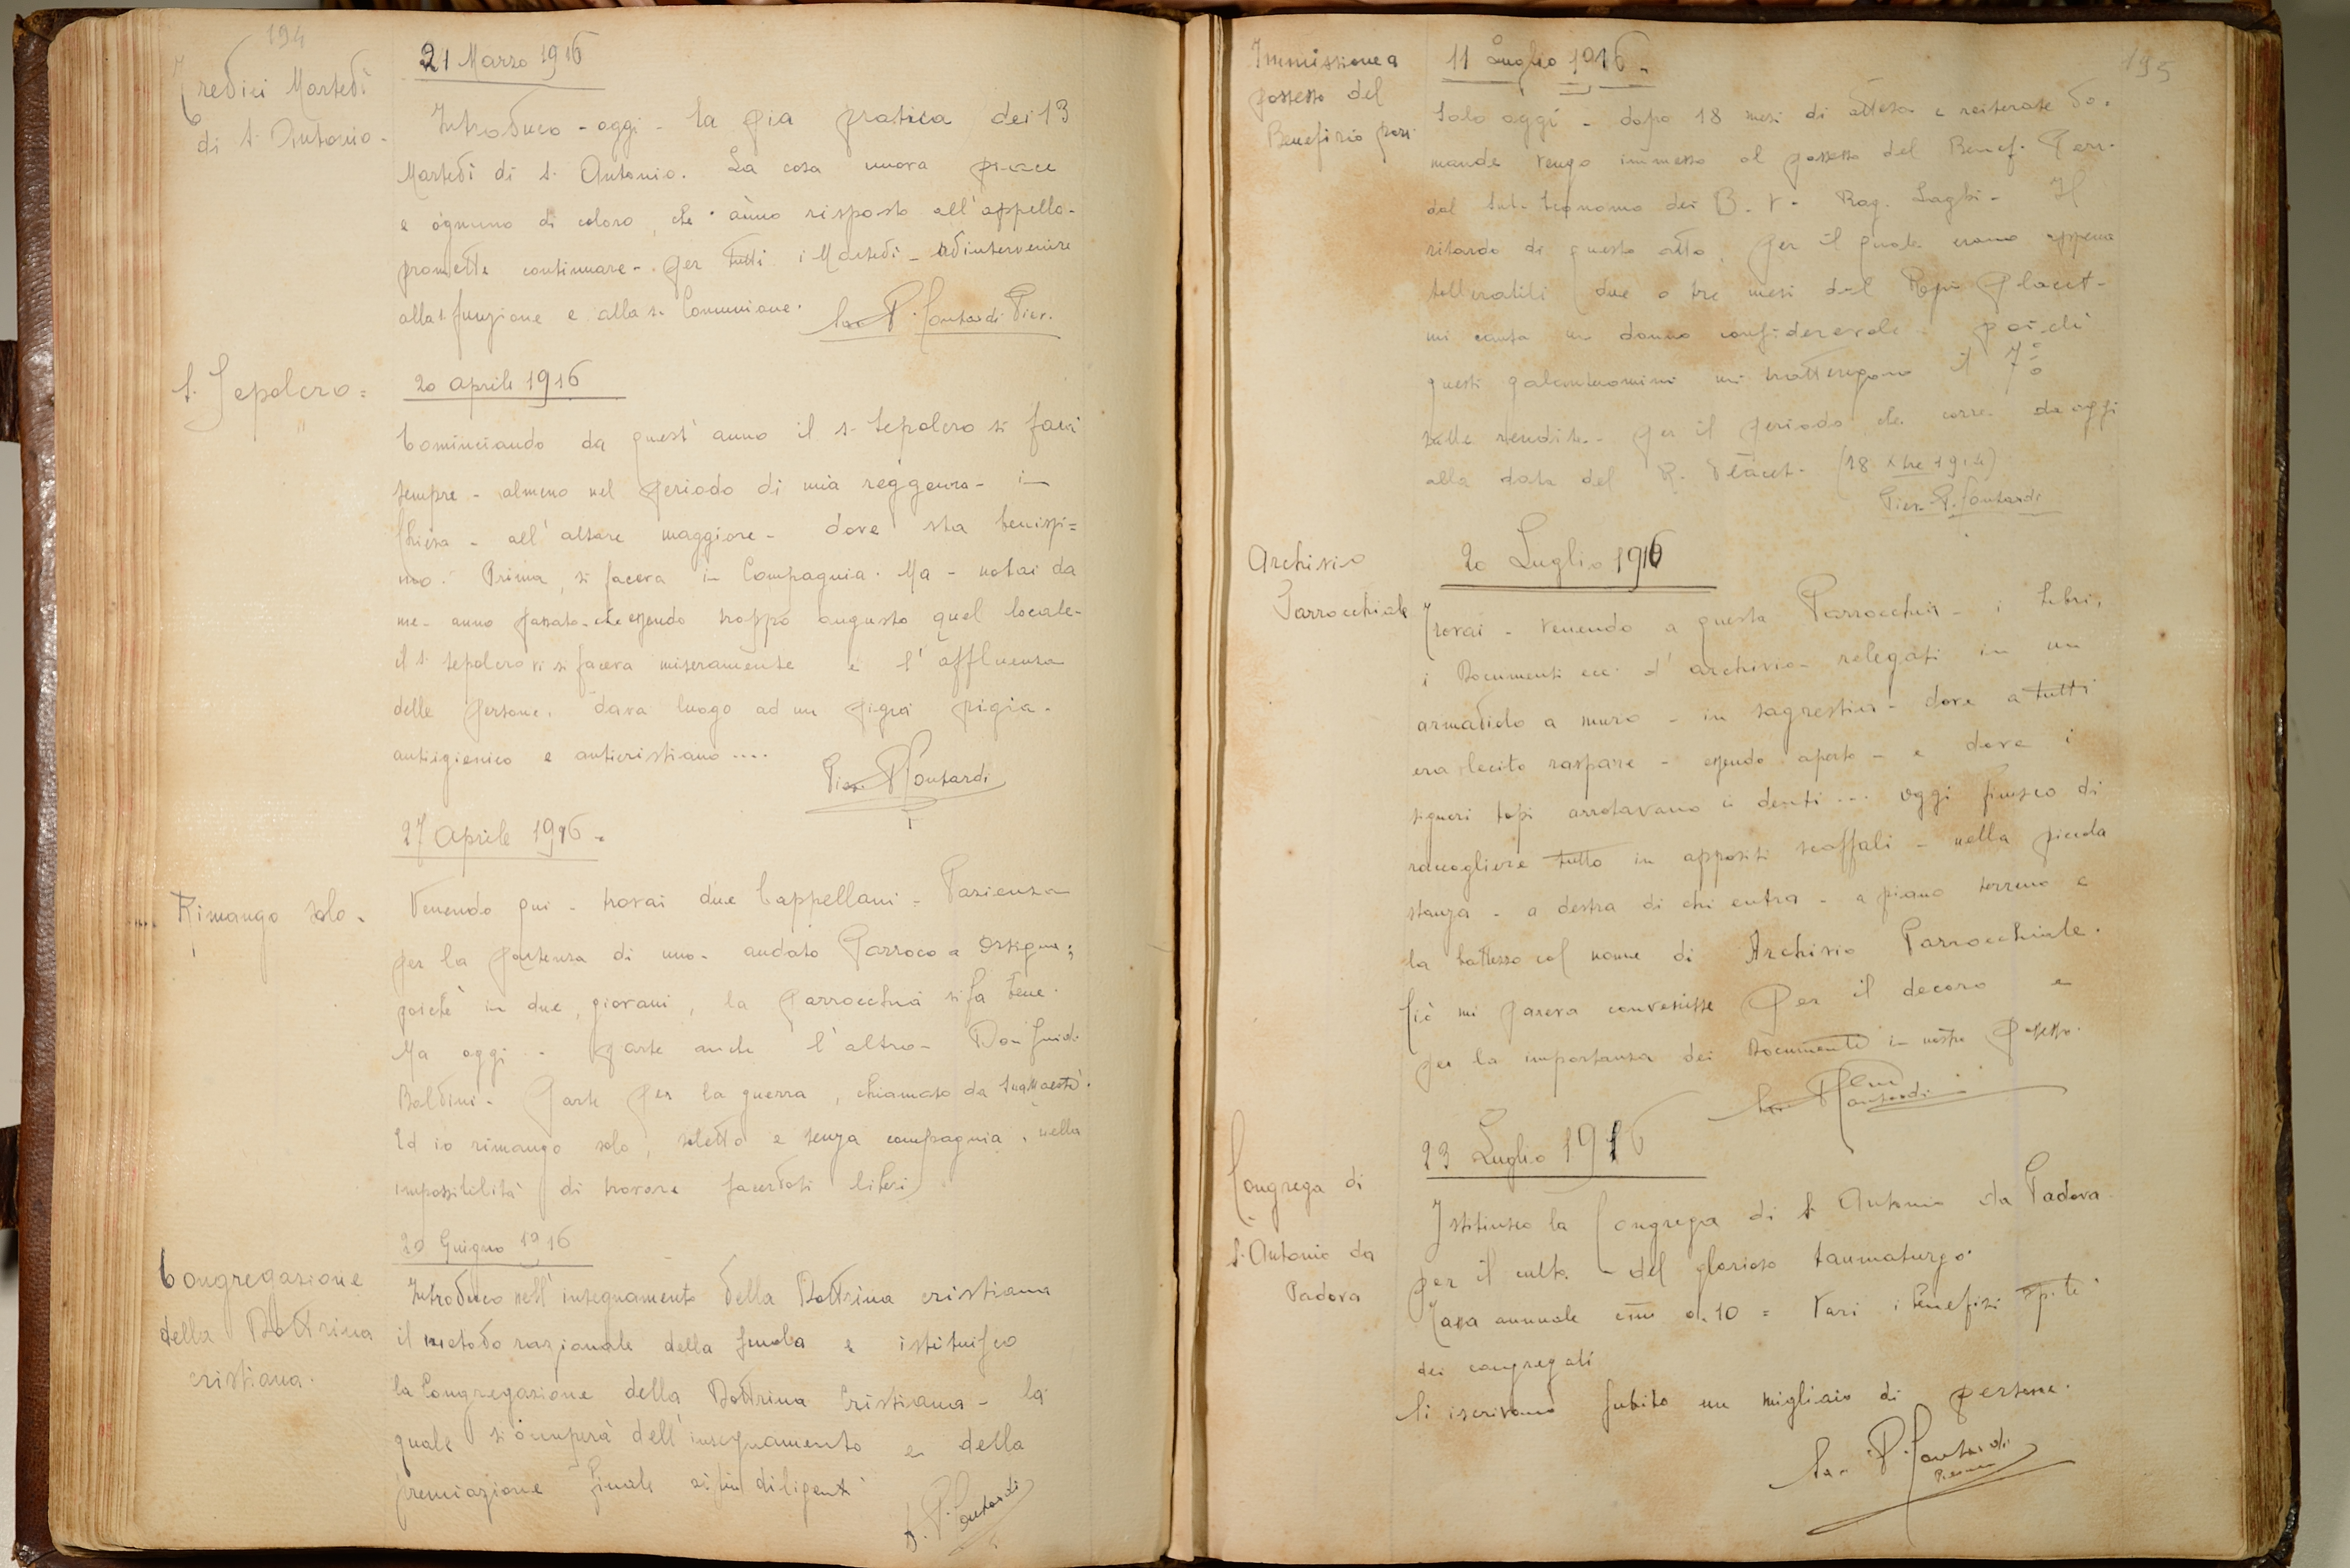 194
Tredici Martedì
di S. Antonio.
21 Marzo 1916
Introduco - oggi - la pia pratica dei 13
Martedì di S. Antonio. La cosa nuova piace
e ognuno di coloro, che ànno risposto all'appello.
promette continuare - per tutti i Martedì - ad intervenire
alla S. funzione e alla S. Comunione. Sac. P. Contardi Piev.
S. Sepolcro =
20 aprile 1916
Cominciando da quest'anno il S. Sepolcro si farà
sempre - almeno nel periodo di mia reggenza - in
Chiesa - all'altare maggiore - dove sta benissi=
mo. Prima, si faceva in Compagnia. Ma - notai da
me - anno passato - che essendo troppo angusto quel locale -
il S. Sepolcro vi si faceva miseramente e l'affluenza
delle persone, dava luogo ad un pigia pigia.
antiigienico e anticristiano ....
Piev. P. Contardi
27 aprile 1916 -
Rimango solo.
Venendo qui - trovai due Cappellani = Pazienza
per la partenza di uno - andato Parroco a Orsigna;
poichè in due, giovani, la parrocchia si fa bene.
Ma oggi .. parte anche l'altro - Don Guido
Baldini - Parte per la guerra, chiamato da Sua Maestà.
Ed io rimango solo, soletto e senza compagnia, nella
impossibilità di trovare sacerdoti liberi
20 Giugno 1916
Congregazione
della Dottrina
cristiana.
Introduco nell'insegnamento della Dottrina cristiana
il metodo razionale della scuola e istituisco
la Congregazione della Dottrina Cristiana - la
quale si occuperà dell'insegnamento e della
premiazione finale ai più diligenti
S. P. Contardi
195
Immissione a
possesso del
Benefizio parr.
11 Luglio 1916 -
Solo oggi - dopo 18 mesi di attesa e reiterate do.
mande vengo immesso al possesso del Benef. Parr.
dal Sub-Economo dei B. V. Rag. Laghi - Il
ritardo di questo atto, per il quale erano appena
tollerabili due o tre mesi dal Regio Placet -
mi causa un danno considerevole - poichè
questi galantuomini mi trattengono il 7 %
sulle rendite - per il periodo che corre da oggi
alla data del R. Placet. (18 Xbre 1914)
Piev. P. Contardi
Archivio
Parrocchiale
20 Luglio 1916
Trovai - venendo a questa Parrocchia - i Libri,
i Documenti ecc. d'archivio - relegati in un
armadiolo a muro - in sagrestia - dove a tutti
era lecito raspare - essendo aperto - e dove i
signori topi arrotavano i denti ... oggi finisco di
raccogliere tutto in appositi scaffali - nella piccola
stanza - a destra di chi entra - a piano terreno e
la battezzo col nome di Archivio Parrocchiale.
Ciò mi pareva convenisse per il decoro e
per la importanza dei Documenti in nostro possesso.
Sac. P. Contardi
23 Luglio 1916
Congrega di
S. Antonio da
Padova
Istituisco la Congrega di S. Antonio da Padova
per il culto - del glorioso taumaturgo.
Tassa annuale cmi 0.10 = Vari i benefizi spiti
dei congregati
Si iscrivono subito un migliaio di persone.
Sac. P. Contardi
Pievano